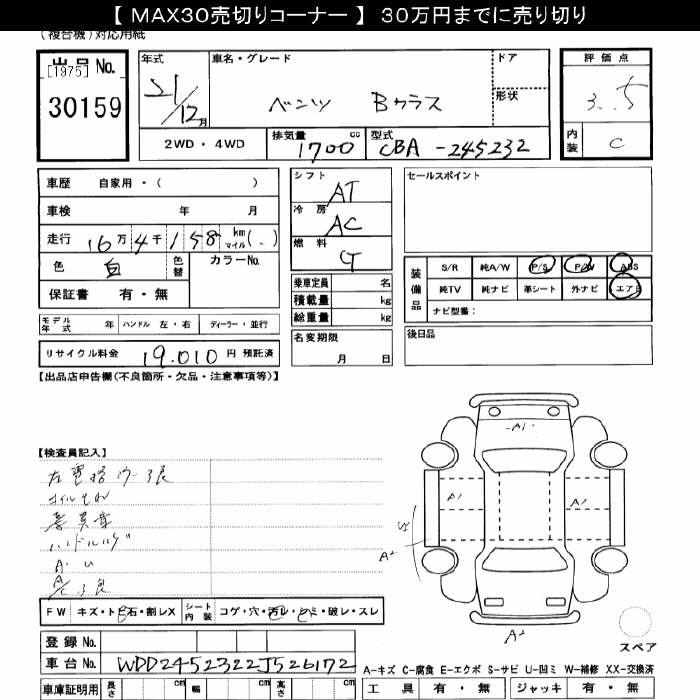 【 MAX30売切りコーナー 】 30万円までに売り切り
(複合機)対応用紙
出品 No.
[1975]
30159
年式
21/12月
車名・グレード
ベンツ Bクラス
ドア
形状
評価点
3.5
内装 C
2WD・4WD
排気量 1700 cc
型式 CBA -245232
車歴 自家用・( )
車検 年 月
走行 16万4千158 km マイル( )
色 白 色替 カラーNo.
保証書 有・無
シフト AT
冷房 AC
燃料 G
乗車定員 名
積載量 kg
総重量 kg
名変期限
月 日
セールスポイント
装備品
S/R 純A/W P/S P/W ABS
純TV 純ナビ 革シート 外ナビ エアB
ナビ型番:
後日品
モデル年式 年 ハンドル 左・右 ディーラー・並行
リサイクル料金 19,010 円 預託済
【出品店申告欄(不良箇所・欠品・注意事項等)】
【検査員記入】
A1
A1
A1
A2
A2
FW キズ・ト石・割レX シート内装 コゲ・穴・汚レ・シミ・破レ・スレ
登録 No.
車台 No. WDD2452322J526172
車庫証明用 長さ cm 幅 cm 高さ cm
スペア
A-キズ C-腐食 E-エクボ S-サビ U-凹ミ W-補修 XX-交換済
工具 有・無 ジャッキ 有・無